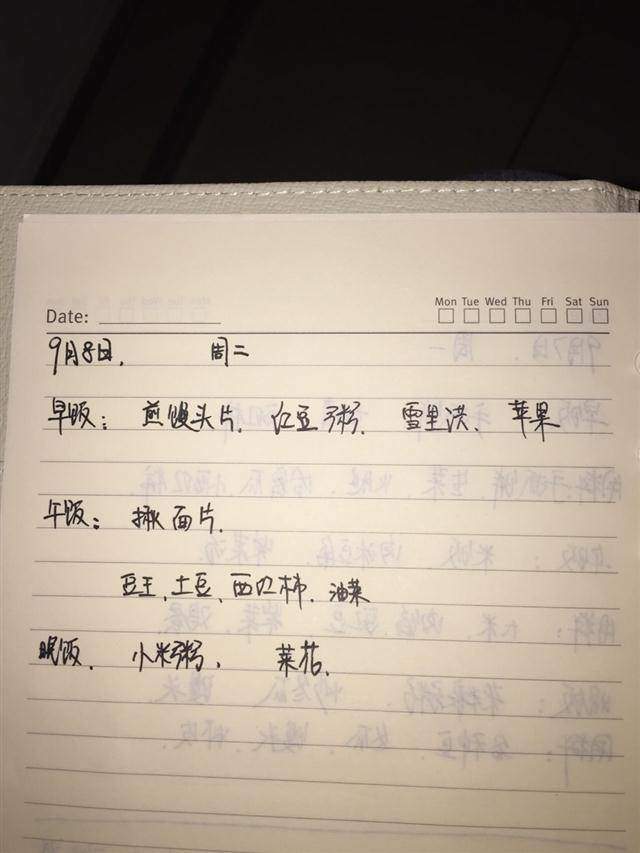 Mon Tue Wed Thu Fri Sat Sun
Date:
9月8日, 周二
早饭: 煎馒头片. 红豆粥. 雪里洪. 苹果
午饭: 揪面片.
豆王, 土豆, 西红柿. 油菜
晚饭. 小米粥, 菜花.